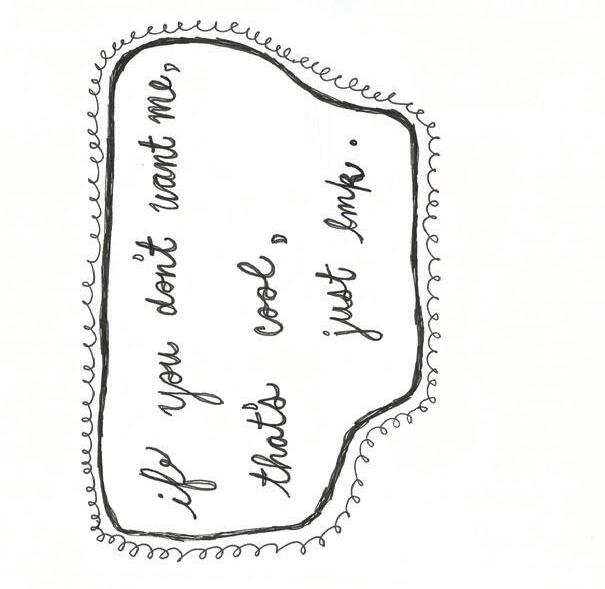 if you don't want me,
that's cool,
just lmk.